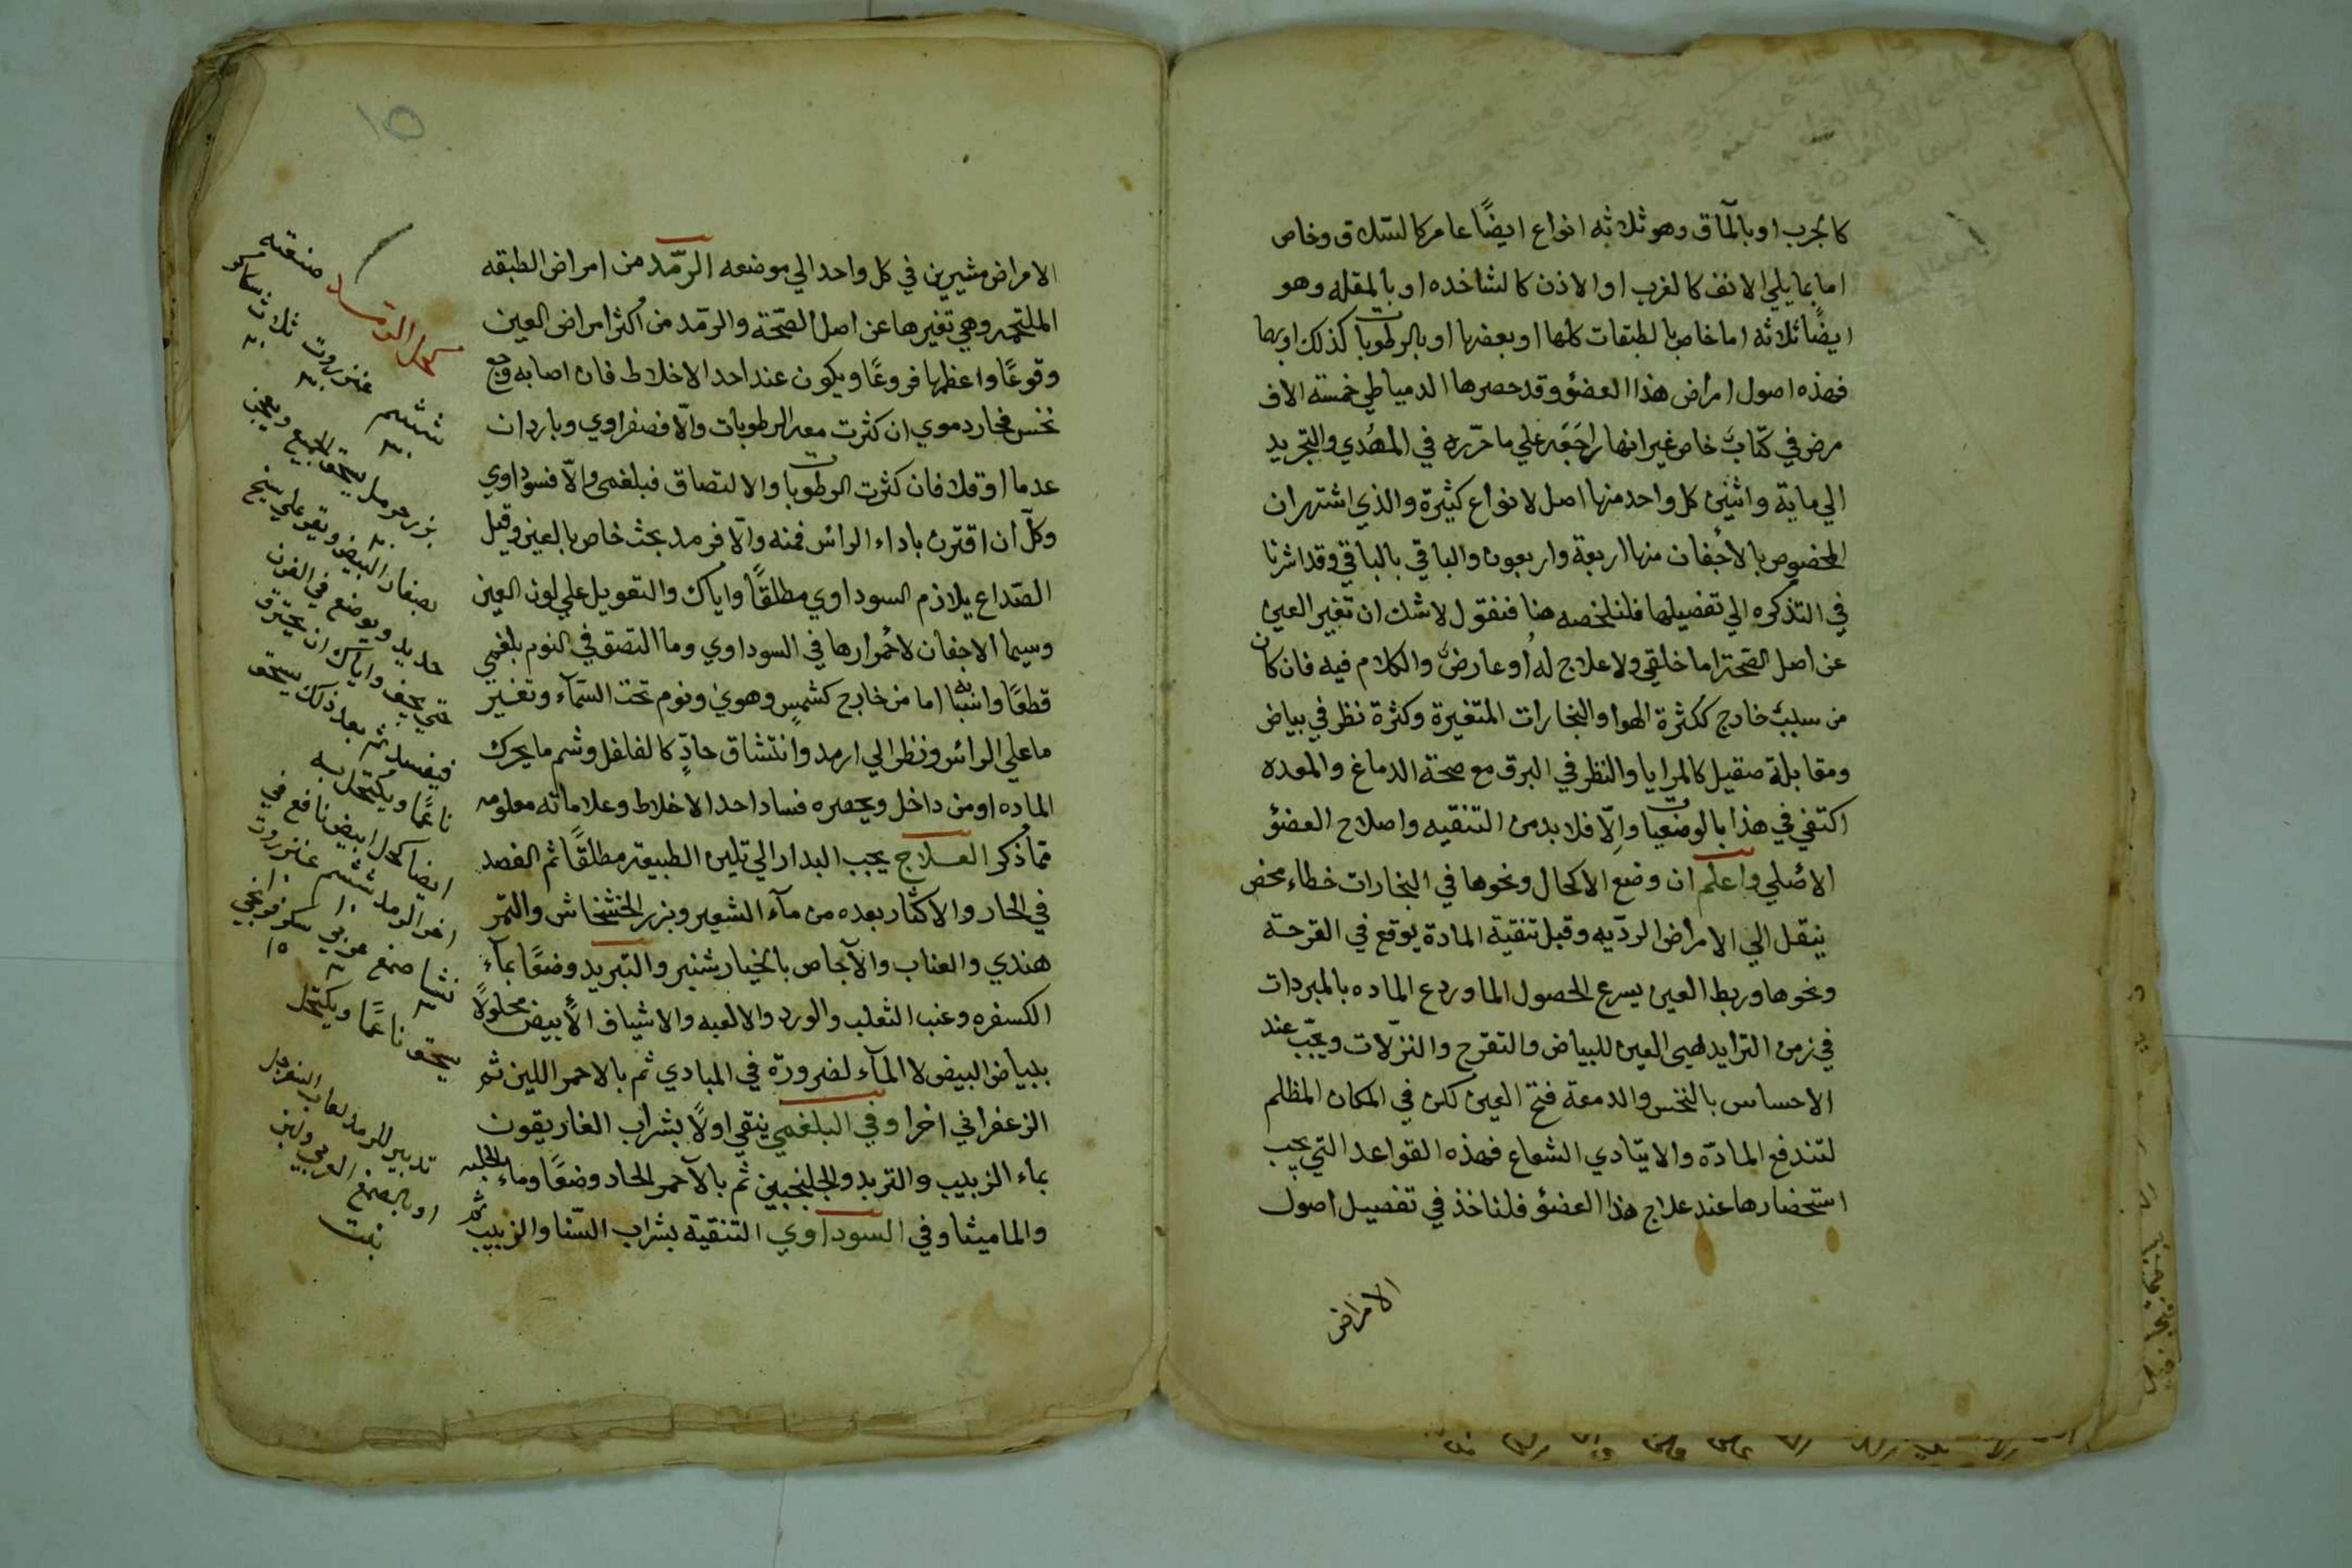 كالجرب او بالمآق وهو ثلاثه انواع ايضًا عام كالسّلاق وخاص
اما بما يلي الانف كالغرب او الاذن كالشاخده او بالمقله وهو
ايضًا ثلاثه اما خاص بالطبقات كلها او بعضها او بالرطوبات كذلك او بهما
فهذه اصول امراض هذا العضو وقد حصرها الدمياطي خمسة الاف
مرض في كتاب خاص غير انها راجعه علي ما حرّره في المهدي والتجريد
الي ماية واثنين كل واحد منها اصل لانواع كثيرة والذي اشتهر ان
المخصوص بالاجفان منها اربعة واربعون والباقي بالباقي وقد اشرنا
في التذكره الي تفصيلها فلنلخصه هنا فنقول لا شك ان تغير العين
عن اصل الصّحة اما خلقي ولا علاج له او عارض والكلام فيه فان كان
من سبب خارج ككثرة الهوا والبخارات المتغيرة وكثرة نظر في بياض
ومقابلة صقيل كالمرايا والنظر في البرق مع صحة الدماغ والمعده
اكتفي في هذا بالوضعيات والّا فلا بد من التنقيه واصلاح العضو
الاصلي واعلم ان وضع الاكحال ونحوها في البخارات خطاء محض
ينقل الي الامراض الرديّه وقبل تنقية المادة يوقع في القرحة
ونحوها وربط العين يسرع لحصول الما وردع الماده بالمبردات
في زمن التزايد يهيى العين للبياض والتقرح والنزلات ويجب عند
الاحساس بالنخس والدمعة فتح العين لكن في المكان المظلم
لتندفع المادّة والا يتادي الشعاع فهذه القواعد التي يجب
استحضارها عند علاج هذا العضو فلناخذ في تفصيل اصول
الامراض
١٥
الامراض مشيرين في كل واحد الي موضعه الرمّد من امراض الطبقه
الملتحمه وهي تغيرها عن اصل الصّحة والرمّد من اكثر امراض العين
وقوعًا واعظمها فروعًا ويكون عند احد الاخلاط فان اصابه وجع
نخس فحار دموي ان كثرت معه الرطوبات والّا فصفراوي وبارد ان
عدما او قلا فان كثرت الرطوبات والالتصاق فبلغمي والّا فسوداوي
وكلّ ان اقترن باداء الراس فمنه والّا فرمد بحث خاص بالعين وقيل
الصّداع يلازم السوداوي مطلقًا واياك والتعويل علي لون العين
وسيما الاجفان لاحمرارها في السوداوي وما التصق في النوم بلغمي
قطعًا واسبابه اما من خارج كشمس وهوي ونوم تحت السّمآء وتغيير
ما علي الراس ونظر الي ارمد وانتشاق حادّ كالفلفل وشم ما يحرك
الماده او من داخل ويحصره فساد احد الاخلاط وعلاماته معلومه
مما ذكر العلاج يجب البدار الي تليين الطبيعة مطلقًا ثم الفصد
في الحار والاكثار بعده من مآء الشعير وبزر الخشخاش والتمر
هندي والعناب والآجاص بالخيار شنبر والتبريد وضعًا بمآء
الكسفره وعنب الثعلب والورد والالعبه والاشياف الأبيض محلولًا
ببياض البيض لا المآء لضرورة في المبادي ثم بالاحمر اللين ثم
الزعفراني اخرا وفي البلغمي ينقي اولًا بشراب الغاريقون
بماء الزبيب والتربد والجلنجبين ثم بالآحمر الحاد وضعًا وماء الحلبه
والماميثا وفي السوداوي التنقية بشراب السّنا والزبيب ثم
صنعته
عنزروت ثلاث سكر
ششم
بزر حرمل يسحق الجميع ويعجن
بصفار البيض ويقوم علي سيخ
حديد ويوضع في الفرن
حتي يجف واياك ان يحترق
فيفسد ثم بعد ذلك يسحق
ناعمًا ويكتحل به
ايضا كحل ابيض نافع في
اخر الرمد ششم عنزروت
نشا صمغ عربي سكر
يسحق ناعمًا ويكتحل
تدبير للرمد لعاب السفرجل
او بالصمغ العربي ولبن
بنت